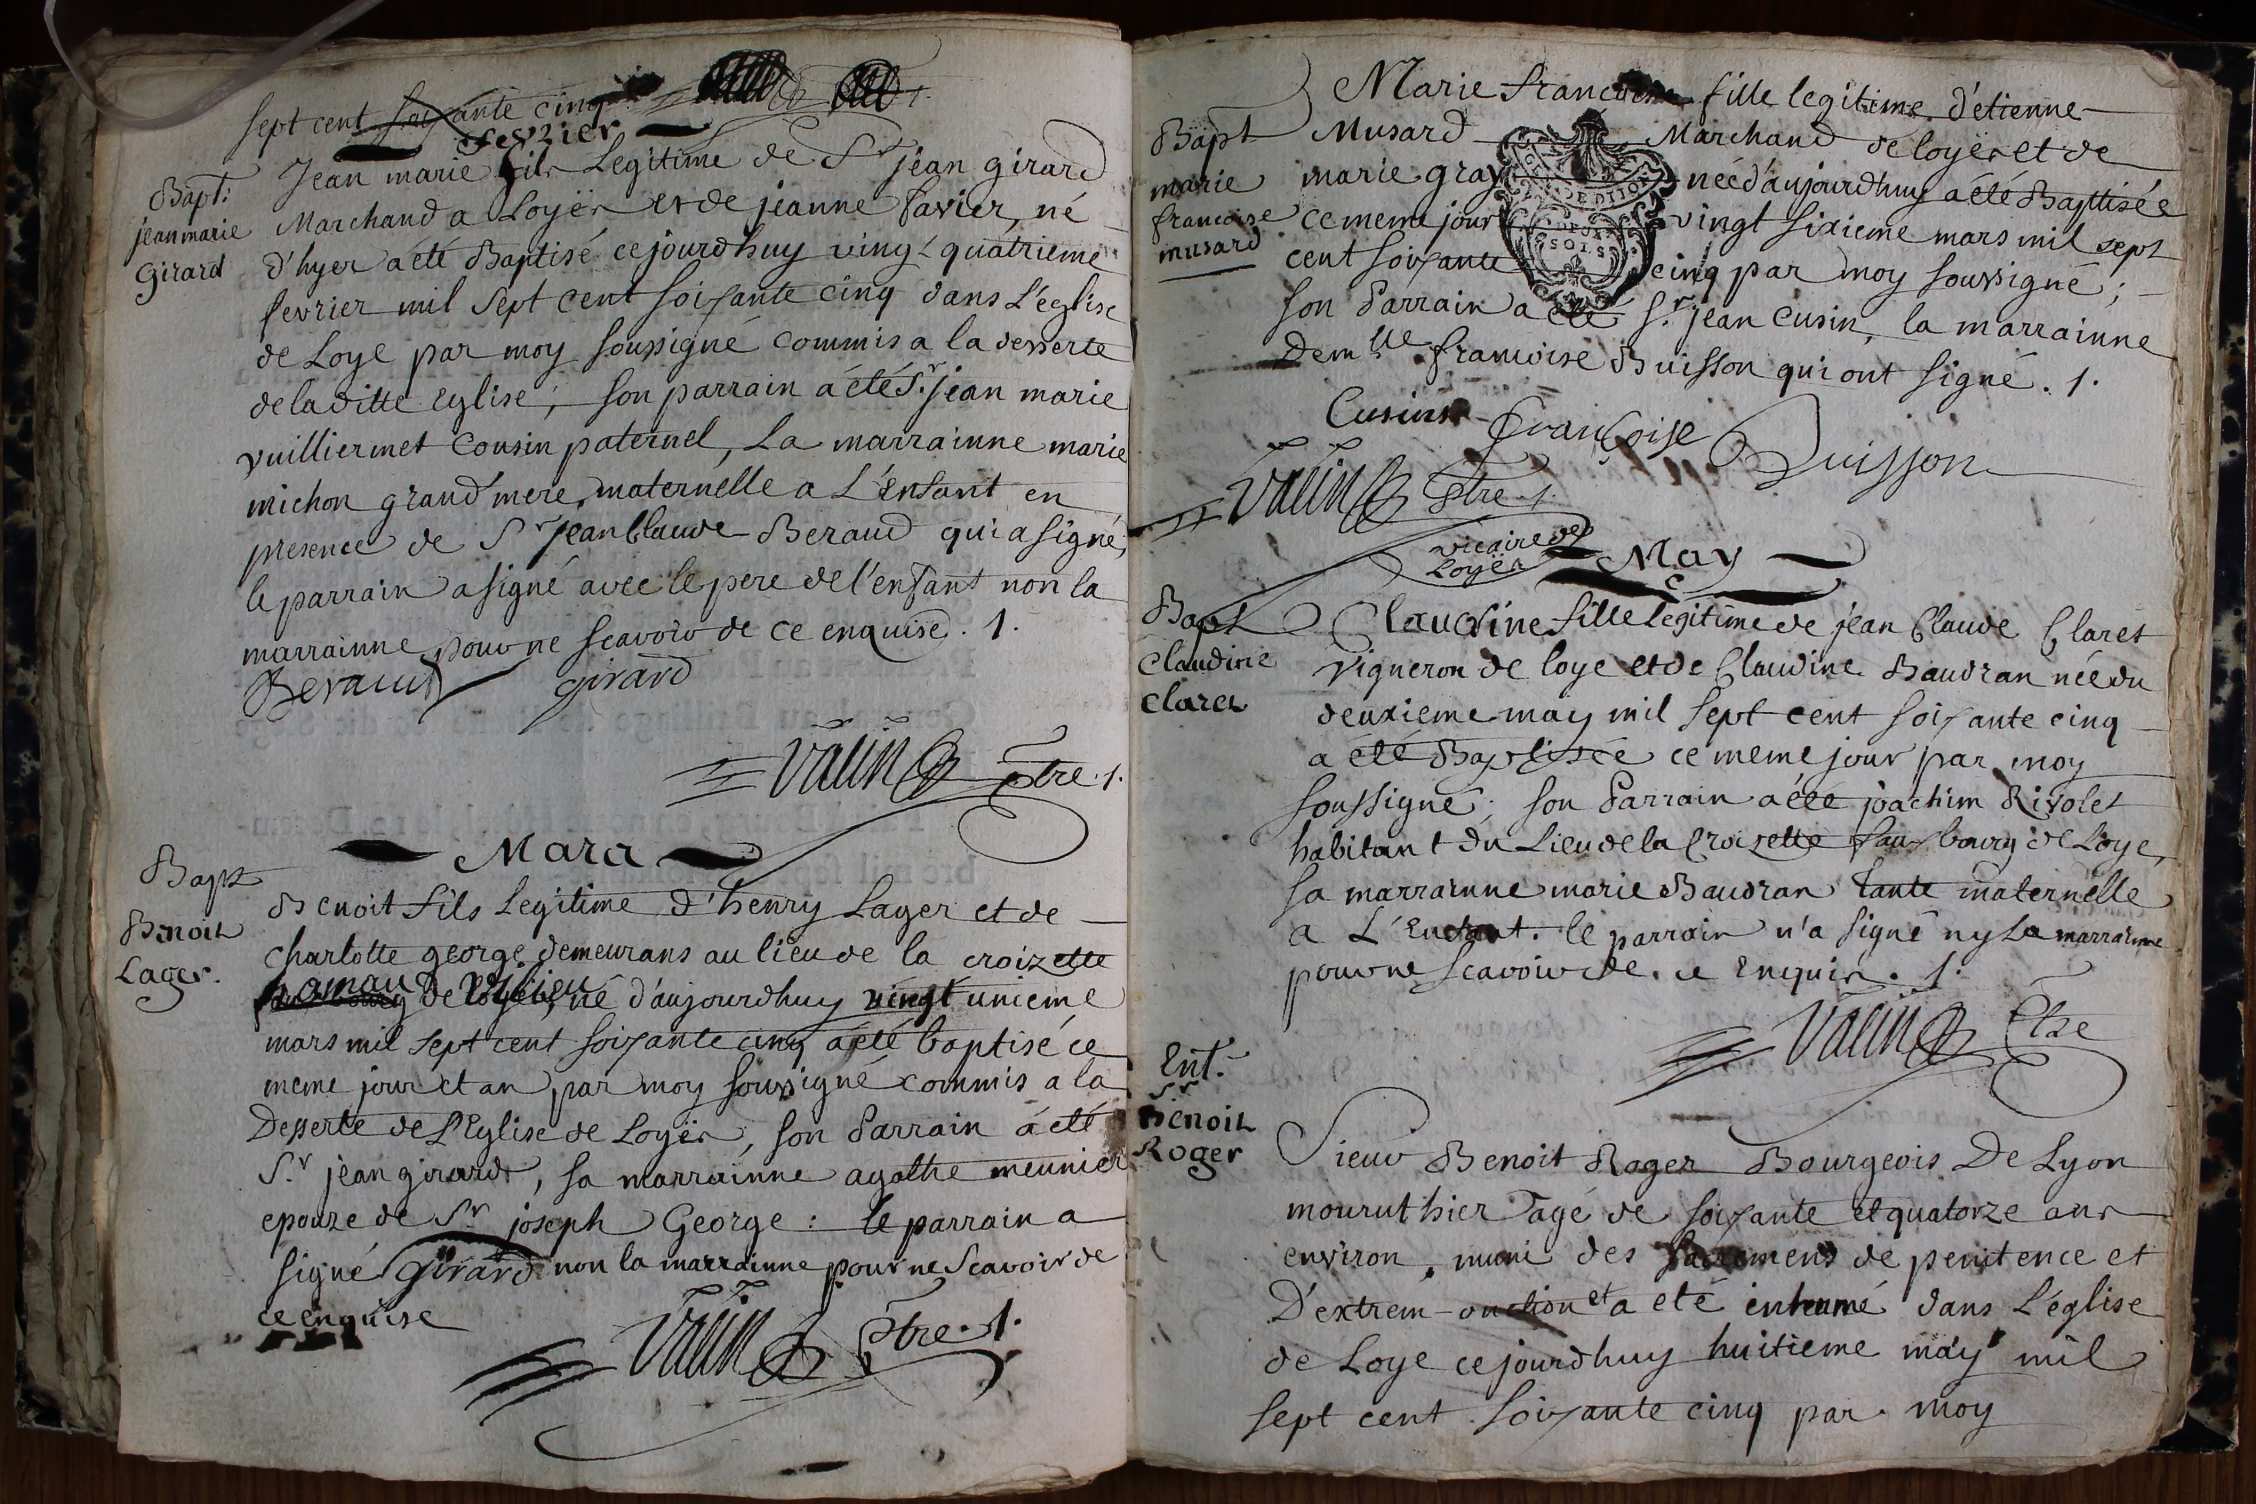 sept cent soixante cinq
fevrier
Bapt:
jean marie
Girard
Jean marie fils Legitime de Sr jean girard
Marchand a Loyër et de jeanne favier, né
d'hyer a été Baptisé ce jourdhuy vingt quatrieme
fevrier mil sept cent soixante cinq dans L'eglise
de Loye par moy soussigné commis a la desserte
de la ditte eglise; son parrain a été Sr. jean marie
vuilliermet cousin paternel, La marrainne marie
michon grand'mere maternelle a L'enfant en
presence de Sr jean Claude Beraud qui a signé,
le parrain a signé avec le pere de l'enfant non la
marrainne pour ne scavoir de ce enquise . 1.
Beraud girard
Valin ptre . 1.
Mars
Bapt
Benoit
Lager.
Benoit fils Legitime d'henry Lager et de
charlotte george demeurans au lieu de la croizette
né d'aujourdhuy vingt unieme
mars mil sept cent soixante cinq a été baptisé ce
meme jour et an par moy soussigné commis a la
Desserte de L'Eglise de Loyër, son Parrain a été
Sr. jean girard, sa marrainne agathe meunier
epouze de Sr joseph George : le parrain a
signé girard non la marrainne pour ne scavoir de
ce enquise
Valin Ptre . 1.
Bapt
marie
francoise
musard
Marie francoise fille legitime d'etienne
Musard Marchand de loyër et de
marie gray née d'aujourdhuy a été Baptisée
ce meme jour vingt sixieme mars mil sept
cent soixante cinq par moy soussigné;
son Parrain a été Sr. jean Cusin, la marrainne
Demlle francoise Buisson qui ont signé . 1.
GEN DEDITION
DEUX
SOLS
Cusin françoise Buisson
Valin Ptre . 1.
vicaire de
Loyër
May
Bapt
Claudine
Claret
Claudine fille legitime de jean Claude Claret
vigneron de loye et de Claudine Baudran née du
deuxieme may mil sept cent soixante cinq
a été Baptisée ce meme jour par moy
soussigné; son Parrain a été joachim Rivolet
habitant du Lieu de la Croizette faux bourg de Loye,
sa marrainne marie Baudran tante maternelle
a L'Enfant. le parrain n'a signé ny La marrainne
pour ne scavoir de ce Enquis . 1.
Valin Ptre
Ent.
Sr
Benoit
Roger
Sieur Benoit Roger Bourgeois De Lyon
mourut hier agé de soixante et quatorze ans
environ, muni des sacremens de penitence et
D'extrem-onction et a eté inhumé dans L'église
de Loye ce jourdhuy huitieme may mil
sept cent soixante cinq par moy